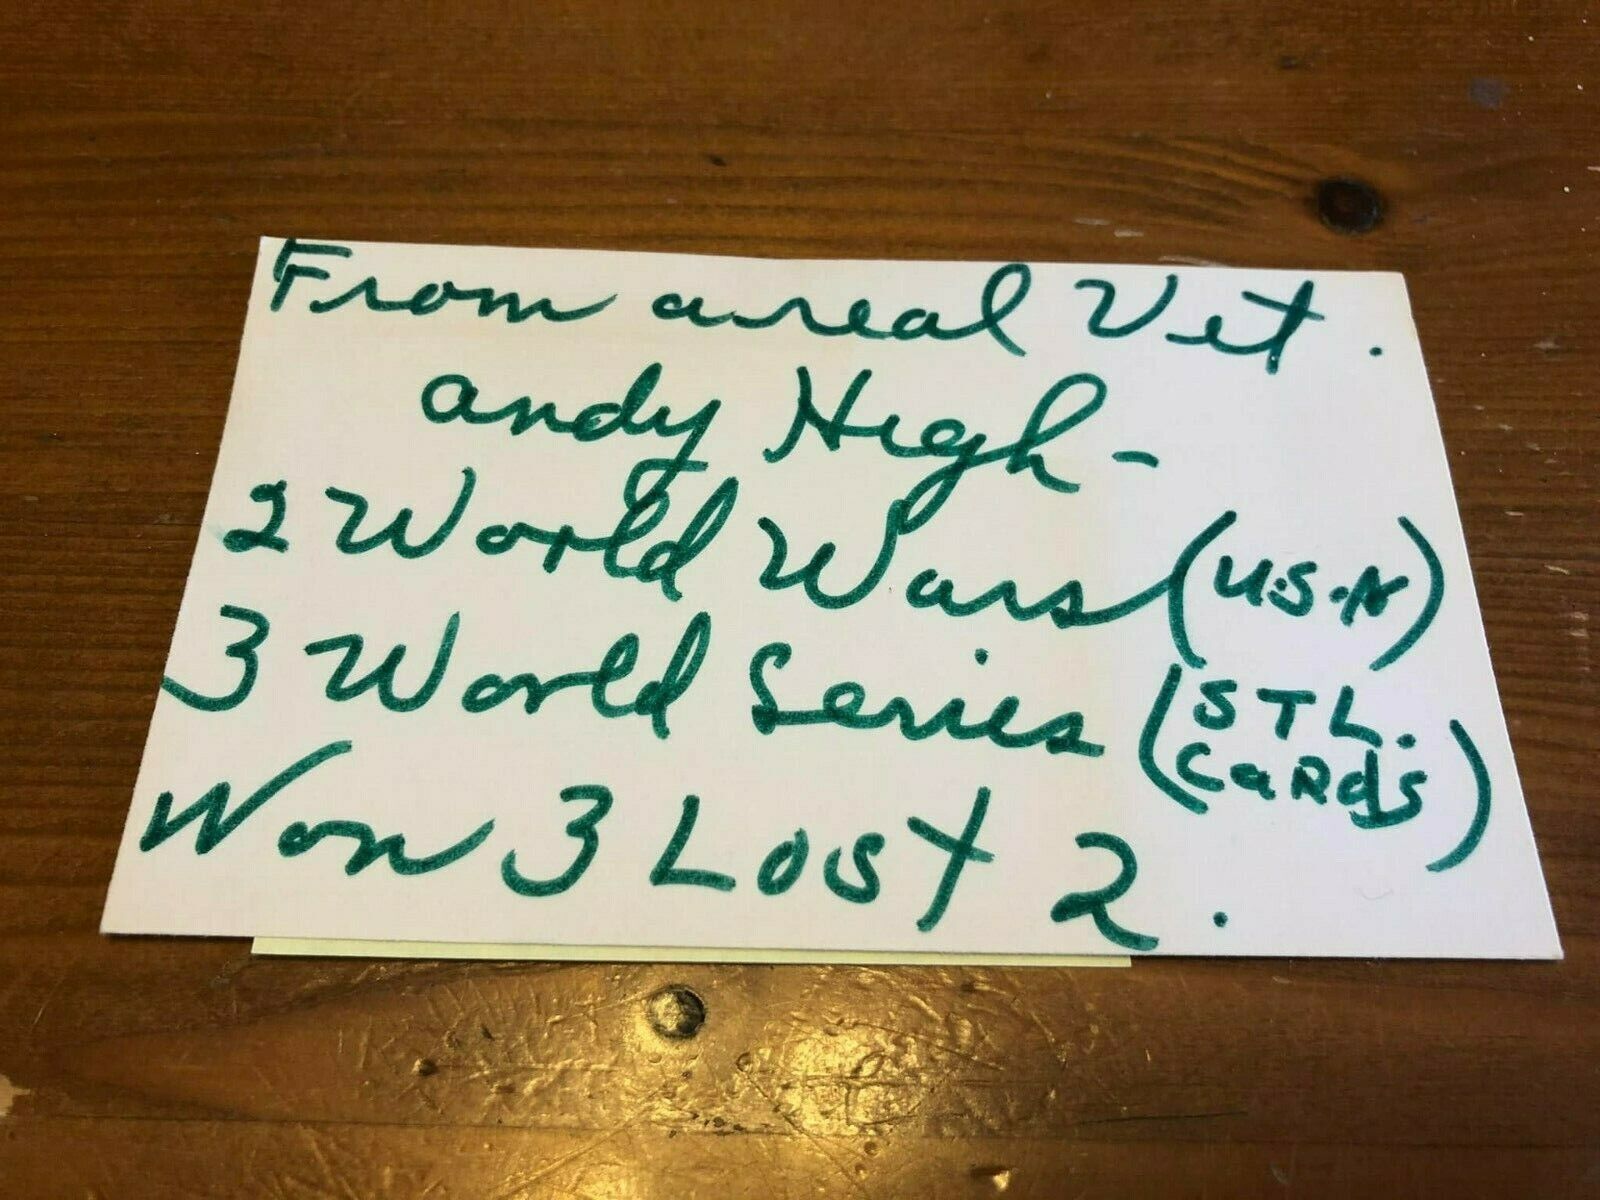 From a real Vet.
Andy High-
2 World Wars (U.S.N)
3 World Series (STL. CaRds)
Won 3 Lost 2.